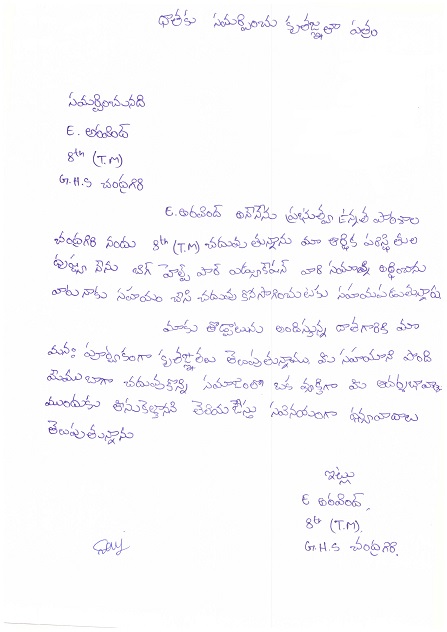 దాతకు సమర్పించు కృతజ్ఞతా పత్రం
సమర్పించునది
E. అరవింద్
8th (T.M)
G.H.S చంద్రగిరి
E. అరవింద్ అనేనేను ప్రభుత్వ ఉన్నత పాఠశాల
చంద్రగిరి నందు 8th (T.M) చదువుతున్నాను మా ఆర్థిక పరిస్థితుల
దృష్ట్యా నేను బిగ్ హెల్ప్ ఫార్ ఎడ్యుకేషన్ వారి సహాయాన్ని అర్థించాను
వారు నాకు సహాయం చేసి చదువు కొనసాగించుటకు సహాయపడుతున్నారు
మాకు తోడ్పాటును అందిస్తున్న దాతగారికి మా
మనః పూర్వకంగా కృతజ్ఞతలు తెలుపుతున్నాము. మీ సహాయాన్ని పొంది
మేము బాగా చదువుకొన్ని సమాజంలో ఒక వ్యక్తిగా మీ ఆదర్శభావాన్ని
ముందుకు తీసుకెళ్తానని తెలియజేస్తు సవినయంగా ధన్యవాదాలు
తెలుపుతున్నాను
ఇట్లు
E అరవింద్,
8th (T.M),
G.H.S చంద్రగిరి.